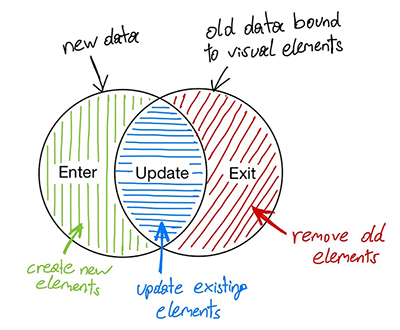 new data
old data bound
to visual elements
Enter
Update
Exit
create new
elements
update existing
elements
remove old
elements